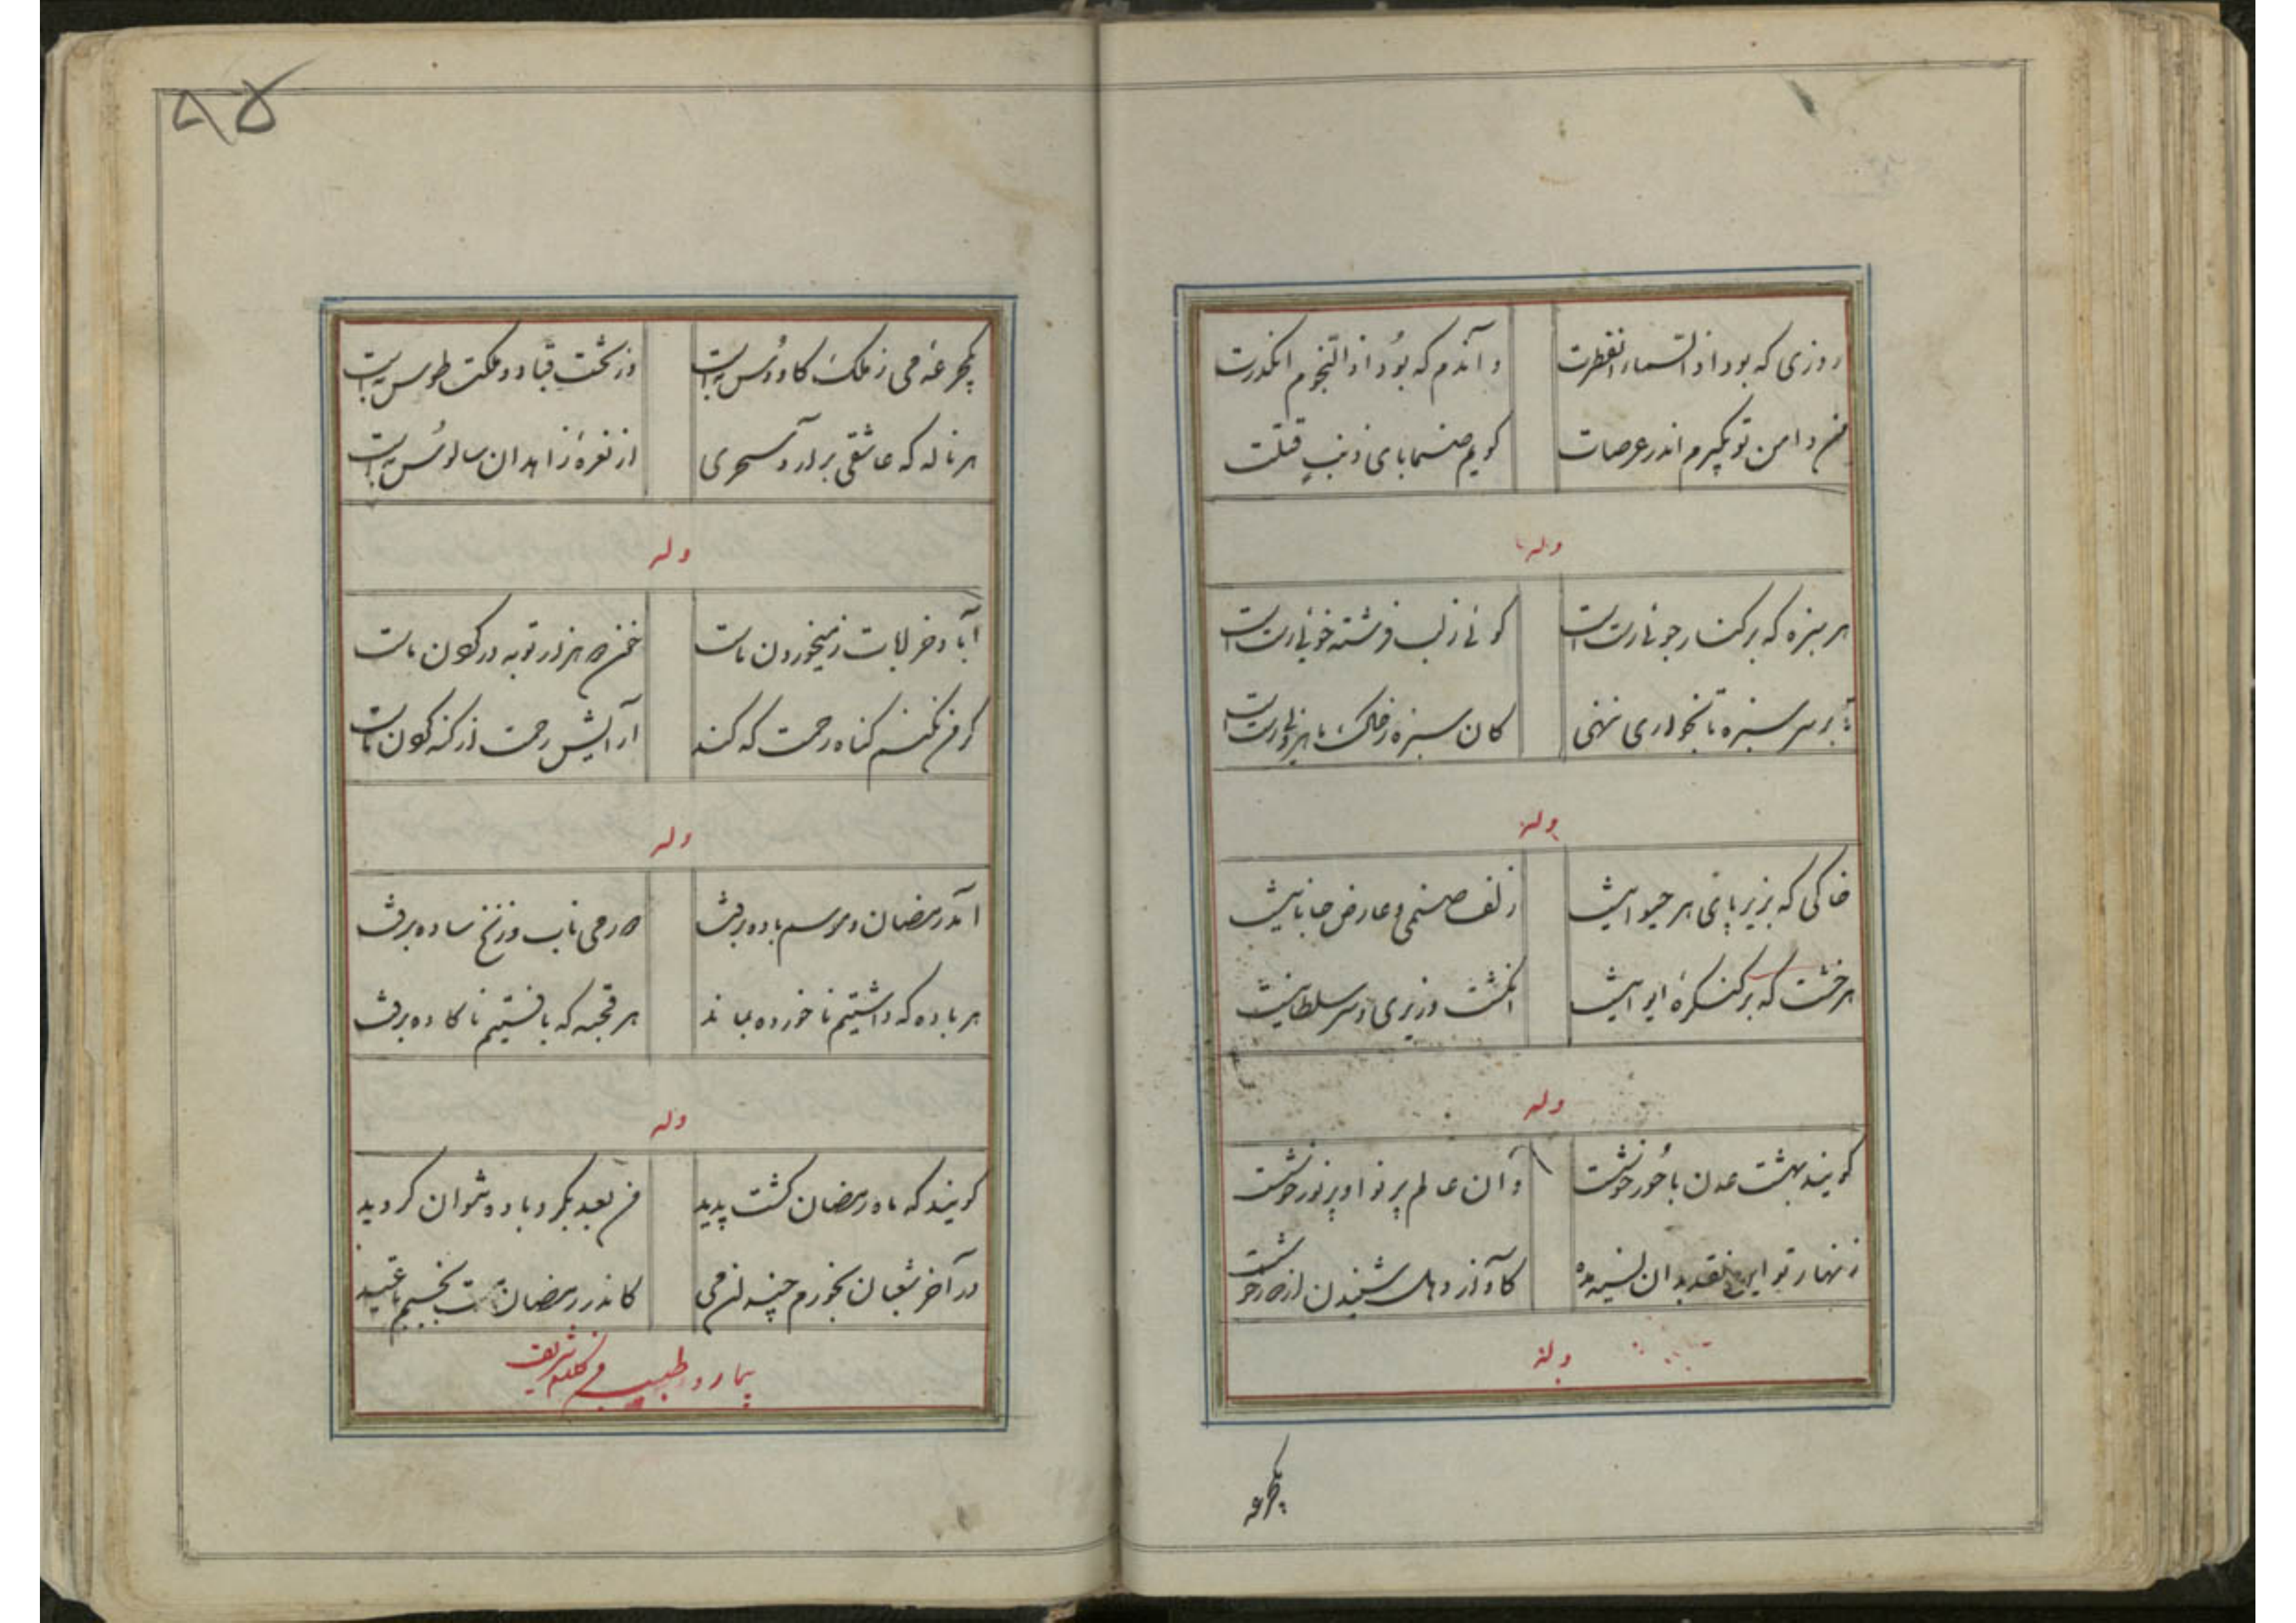 روزی که بود اذا السماء انفطرت وآندم که بود اذا النجوم انکدرت
من دامن تو بگیرم اندر عرصات گویم صنما بای ذنب قتلت
وله
هر سبزه که بر کنار جوئی رسته است گوئی ز لب فرشته خوئی رسته است
تا بر سر سبزه پا بخواری ننهی کان سبزه ز خاک ماهروئی رسته است
وله
خاکی که بزیر پای هر حیوانیست زلف صنمی و عارض جانانیست
هر خشت که بر کنگرهٔ ایوانیست انگشت وزیری و سر سلطانیست
وله
گویند بهشت عدن با حور خوشست وآن عالم پر نوا و پر نور خوشست
زنهار تو این نقد بدان نسیه مده کآواز دهل شنیدن از دور خوشست
وله
یکجرعه
۹۵
یکجرعه می ز ملک کاوس به است وز تخت قباد و مملکت طوس به است
هر ناله که عاشقی برآرد سحری از نعرهٔ زاهدان سالوس به است
وله
آباد خرابات ز میخوردن ماست خون دو هزار توبه در گردن ماست
گر من نکنم گناه رحمت که کند آرایش رحمت از گنه کردن ماست
وله
آمد رمضان و موسم باده برفت دور می ناب و زنخ ساده برفت
هر باده که داشتیم ناخورده بماند هر قحبه که یافتیم ناگاده برفت
وله
گویند که ماه رمضان گشت پدید من بعد بگرد باده نتوان گردید
در آخر شعبان بخورم چندان می کاندر رمضان مست بخسبم تا عید
بیمار و طبیب فی کلامه شریف